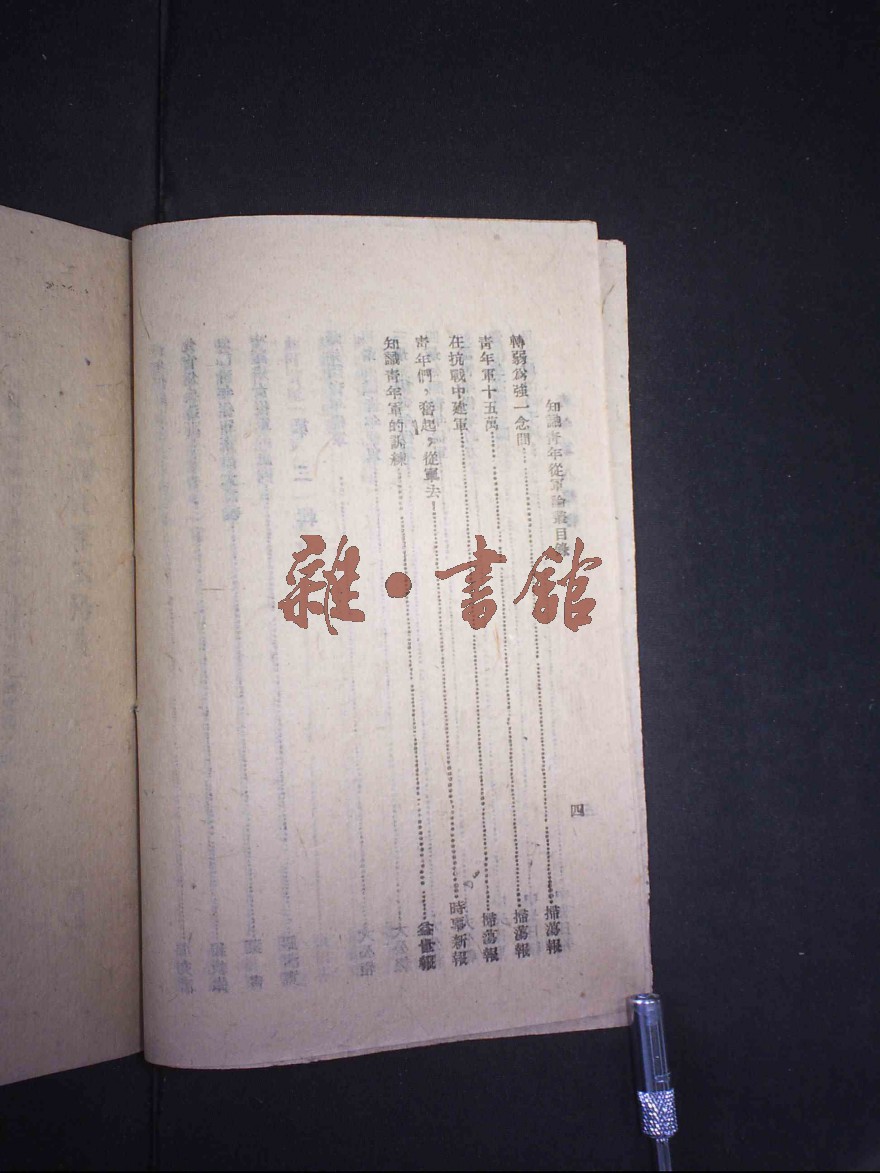 知識青年從軍論叢目錄
四
轉弱爲強一念間……掃蕩報
青年軍十五萬……掃蕩報
在抗戰中建軍……掃蕩報
青年們，奮起，從軍去……時事新報
知識青年軍的訓練……益世報
雜·書館